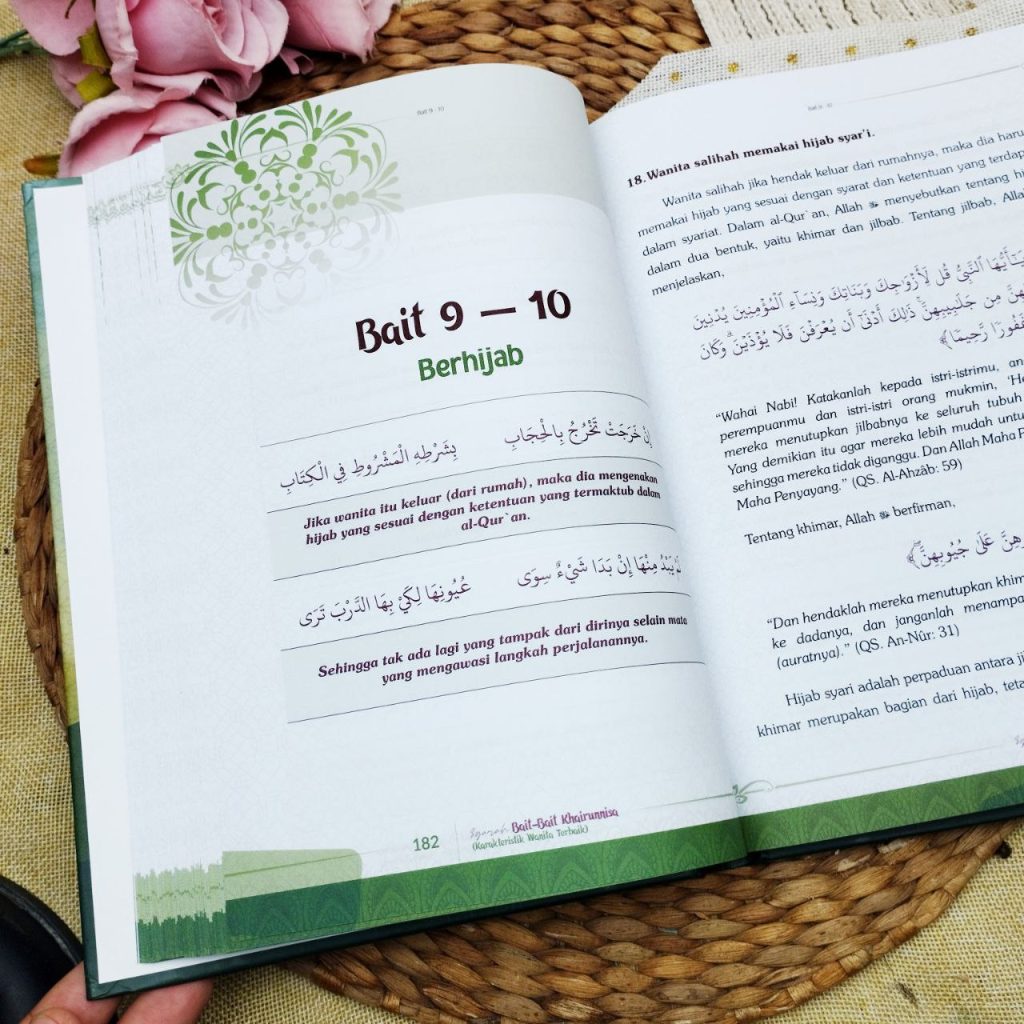 Bait 9 - 10
Bait 9 — 10
Berhijab
إِنْ خَرَجَتْ تَخْرُجُ بِالْحِجَابِ بِشَرْطِهِ الْمَشْرُوطِ فِي الْكِتَابِ
Jika wanita itu keluar (dari rumah), maka dia mengenakan
hijab yang sesuai dengan ketentuan yang termaktub dalam
al-Qur`an.
يَبْدُ مِنْهَا إِنْ بَدَا شَيْءٌ سِوَى عُيُونِهَا لِكَيْ بِهَا الدَّرْبَ تَرَى
Sehingga tak ada lagi yang tampak dari dirinya selain mata
yang mengawasi langkah perjalanannya.
182
Syarah Bait-Bait Khairunnisa
(Karakteristik Wanita Terbaik)
Bait 9 - 10
18. Wanita salihah memakai hijab syar'i.
Wanita salihah jika hendak keluar dari rumahnya, maka dia haru
memakai hijab yang sesuai dengan syarat dan ketentuan yang terdap
dalam syariat. Dalam al-Qur`an, Allah ﷻ menyebutkan tentang hi
dalam dua bentuk, yaitu khimar dan jilbab. Tentang jilbab, Alla
menjelaskan,
يَٰٓأَيُّهَا ٱلنَّبِىُّ قُل لِّأَزْوَٰجِكَ وَبَنَاتِكَ وَنِسَآءِ ٱلْمُؤْمِنِينَ يُدْنِينَ
مِن جَلَٰبِيبِهِنَّ ۚ ذَٰلِكَ أَدْنَىٰٓ أَن يُعْرَفْنَ فَلَا يُؤْذَيْنَ ۗ وَكَانَ
غَفُورًا رَّحِيمًا﴾
“Wahai Nabi! Katakanlah kepada istri-istrimu, an
perempuanmu dan istri-istri orang mukmin, ‘He
mereka menutupkan jilbabnya ke seluruh tubuh
Yang demikian itu agar mereka lebih mudah untu
sehingga mereka tidak diganggu. Dan Allah Maha P
Maha Penyayang.” (QS. Al-Ahzâb: 59)
Tentang khimar, Allah ﷻ berfirman,
عَلَىٰ جُيُوبِهِنَّ ۖ﴾
“Dan hendaklah mereka menutupkan khim
ke dadanya, dan janganlah menampa
(auratnya).” (QS. An-Nûr: 31)
Hijab syari adalah perpaduan antara ji
khimar merupakan bagian dari hijab, teta